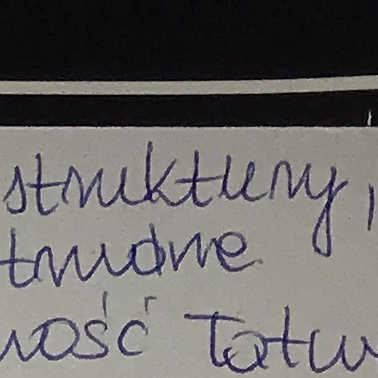 struktury,
trudne
ność Tatw